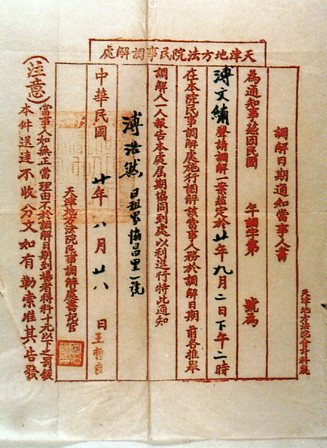 天津地方法院民事調解處
天津地方法院會計科製
調解日期通知當事人書
為通知事茲因民國 年調字第 號為
溥文繡聲請調解一案茲定於廿年九月二日下午二時
在本院民事調解處施行調解該當事人務於調解日期前各推舉
調解人一人報告本處屆期協同到處以利進行特此通知
溥浩然 日租界協昌里一號
中華民國 廿年八月廿八日
天津地方法院民事調解處書記官
(注意)
當事人如無正當理由不於調解日期到場者得科十元以下之罰鍰
本件送達不收分文如有勒索准其告發